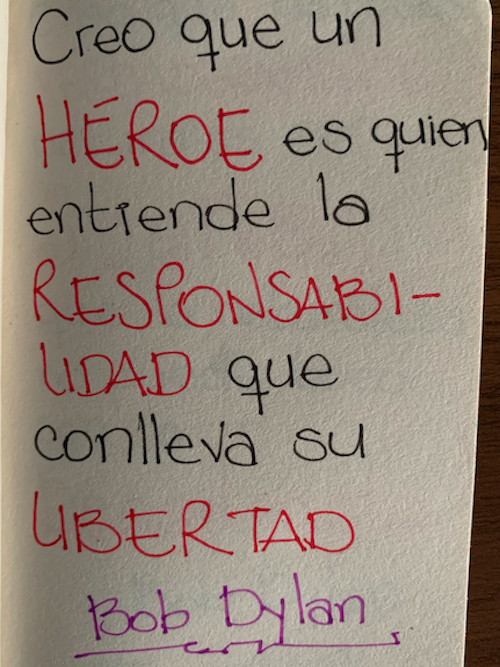 Creo que un
HÉROE es quien
entiende la
RESPONSABI-
LIDAD que
conlleva su
LIBERTAD
Bob Dylan